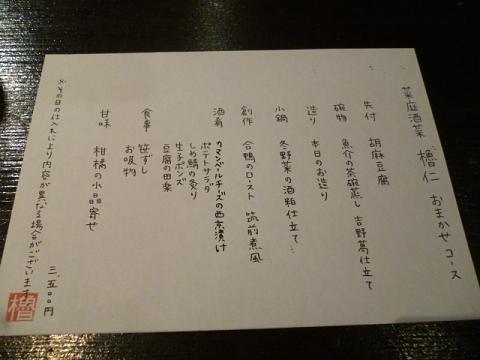 菜庭酒菜 櫓仁 おまかせコース
先付 胡麻豆腐
椀物 魚介の茶碗蒸し 吉野葛仕立て
造り 本日のお造り
小鍋 冬野菜の酒粕仕立て
創作 合鴨のロースト 筑前煮風
酒肴 カマンベールチーズの西京漬け
ポテトサラダ
しめ鯖の炙り
生子ポンズ
豆腐の田楽
食事 笹ずし
お吸物
甘味 柑橘の小品寄せ
三、五〇〇円
※その日の仕入れにより内容が異なる場合がございます
櫓